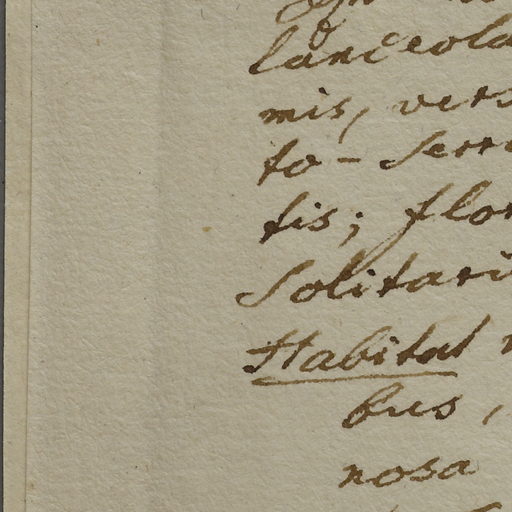 lanceola
mis, vers
to-serr
tis; flor
Solitari
Habitat
bus,
nosa